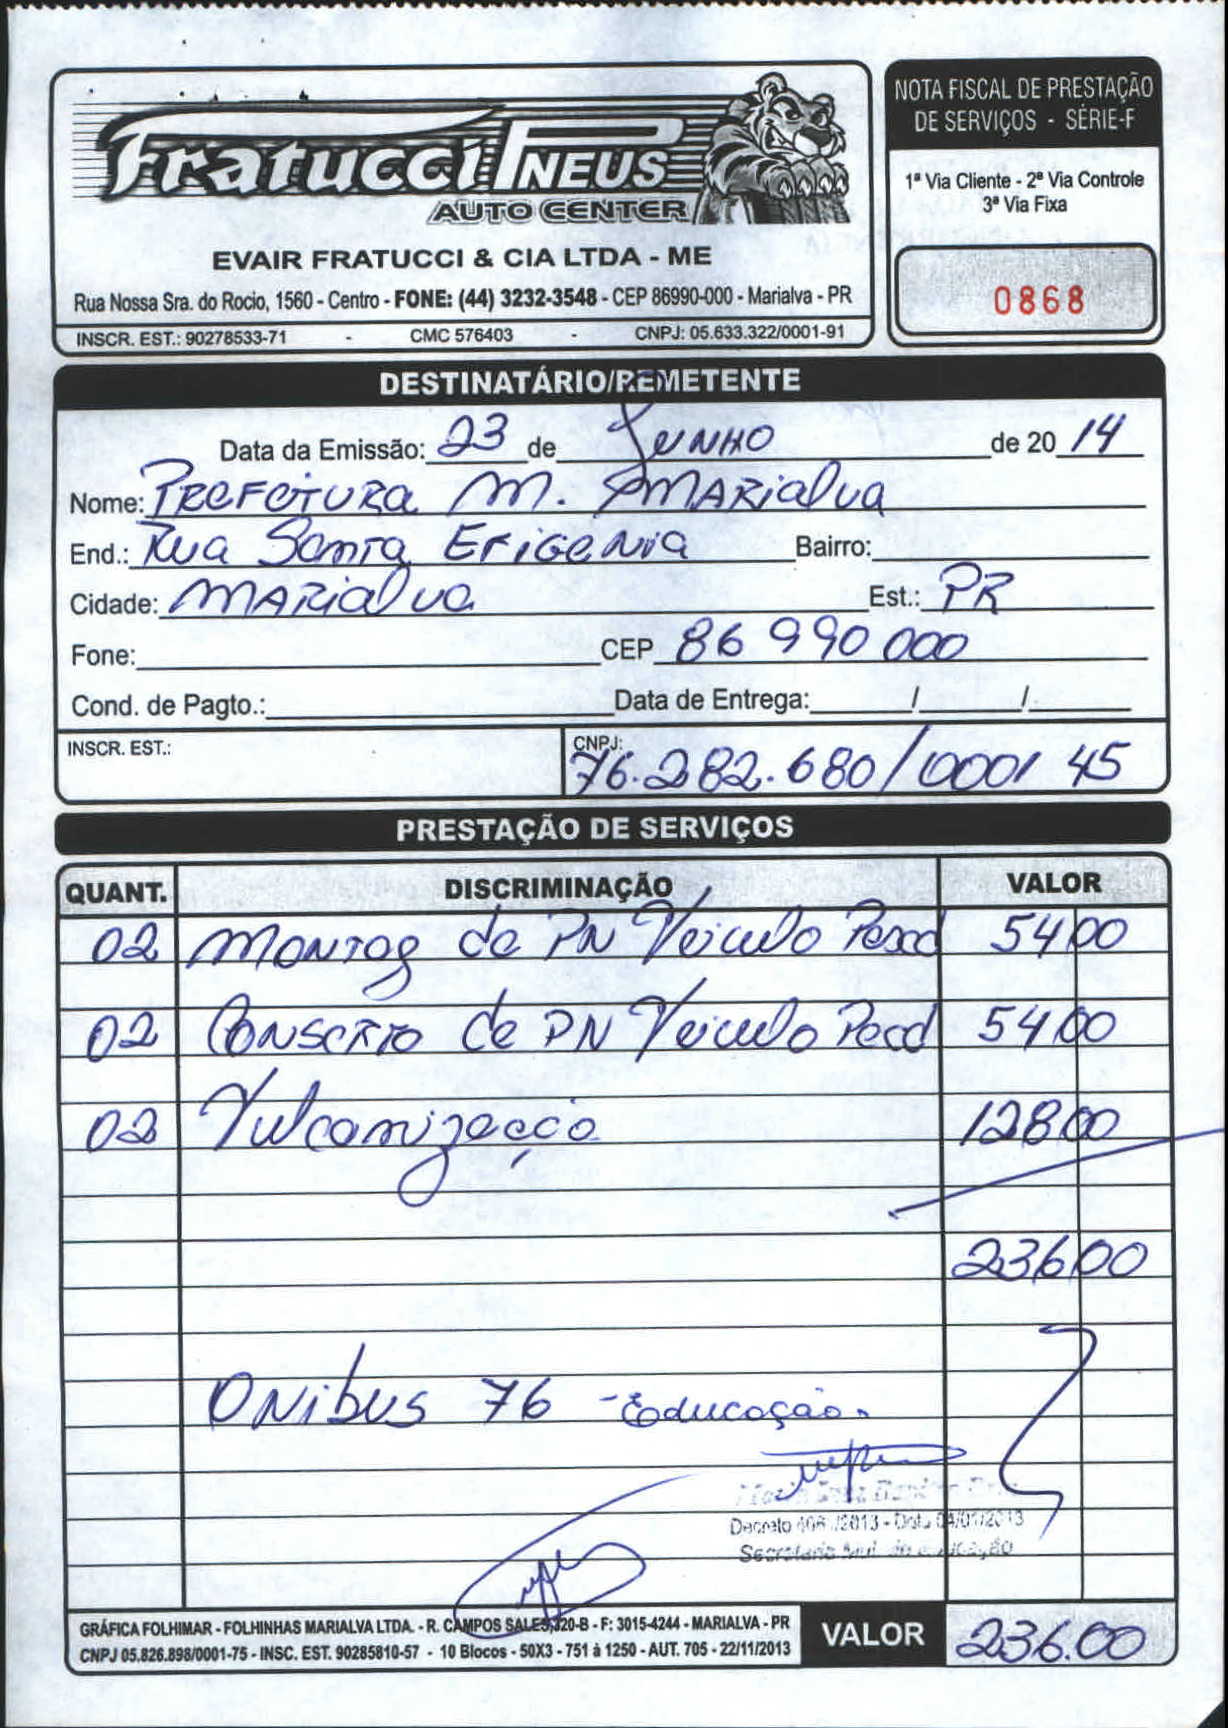 Fratucci PNEUS
AUTO CENTER
EVAIR FRATUCCI & CIA LTDA - ME
Rua Nossa Sra. do Rocio, 1560 - Centro - FONE: (44) 3232-3548 - CEP 86990-000 - Marialva - PR
INSCR. EST.: 90278533-71 - CMC 576403 - CNPJ: 05.633.322/0001-91
NOTA FISCAL DE PRESTAÇÃO
DE SERVIÇOS - SÉRIE-F
1ª Via Cliente - 2ª Via Controle
3ª Via Fixa
0868
DESTINATÁRIO/REMETENTE
Data da Emissão: 23 de Junho de 20 14
Nome: Prefeitura M. Marialva
End.: Rua Santa Efigenia Bairro:
Cidade: Marialva Est.: PR
Fone: CEP 86 990 000
Cond. de Pagto.: Data de Entrega: / /
INSCR. EST.: CNPJ: 76.282.680/0001 45
PRESTAÇÃO DE SERVIÇOS
QUANT. DISCRIMINAÇÃO VALOR
02 Montag de PN Veiculo Pesad 54 00
02 Conserto de PN Veiculo Pesad 54 00
02 Vulcanização 128 00
236 00
Onibus 76 - Educação
Decreto /2013 - Data 04/01/2013
Secretaria Mul. de Educação
GRÁFICA FOLHIMAR - FOLHINHAS MARIALVA LTDA. - R. CAMPOS SALES, 320-B - F: 3015-4244 - MARIALVA - PR
CNPJ 05.826.898/0001-75 - INSC. EST. 90285810-57 - 10 Blocos - 50X3 - 751 à 1250 - AUT. 705 - 22/11/2013
VALOR 236.00